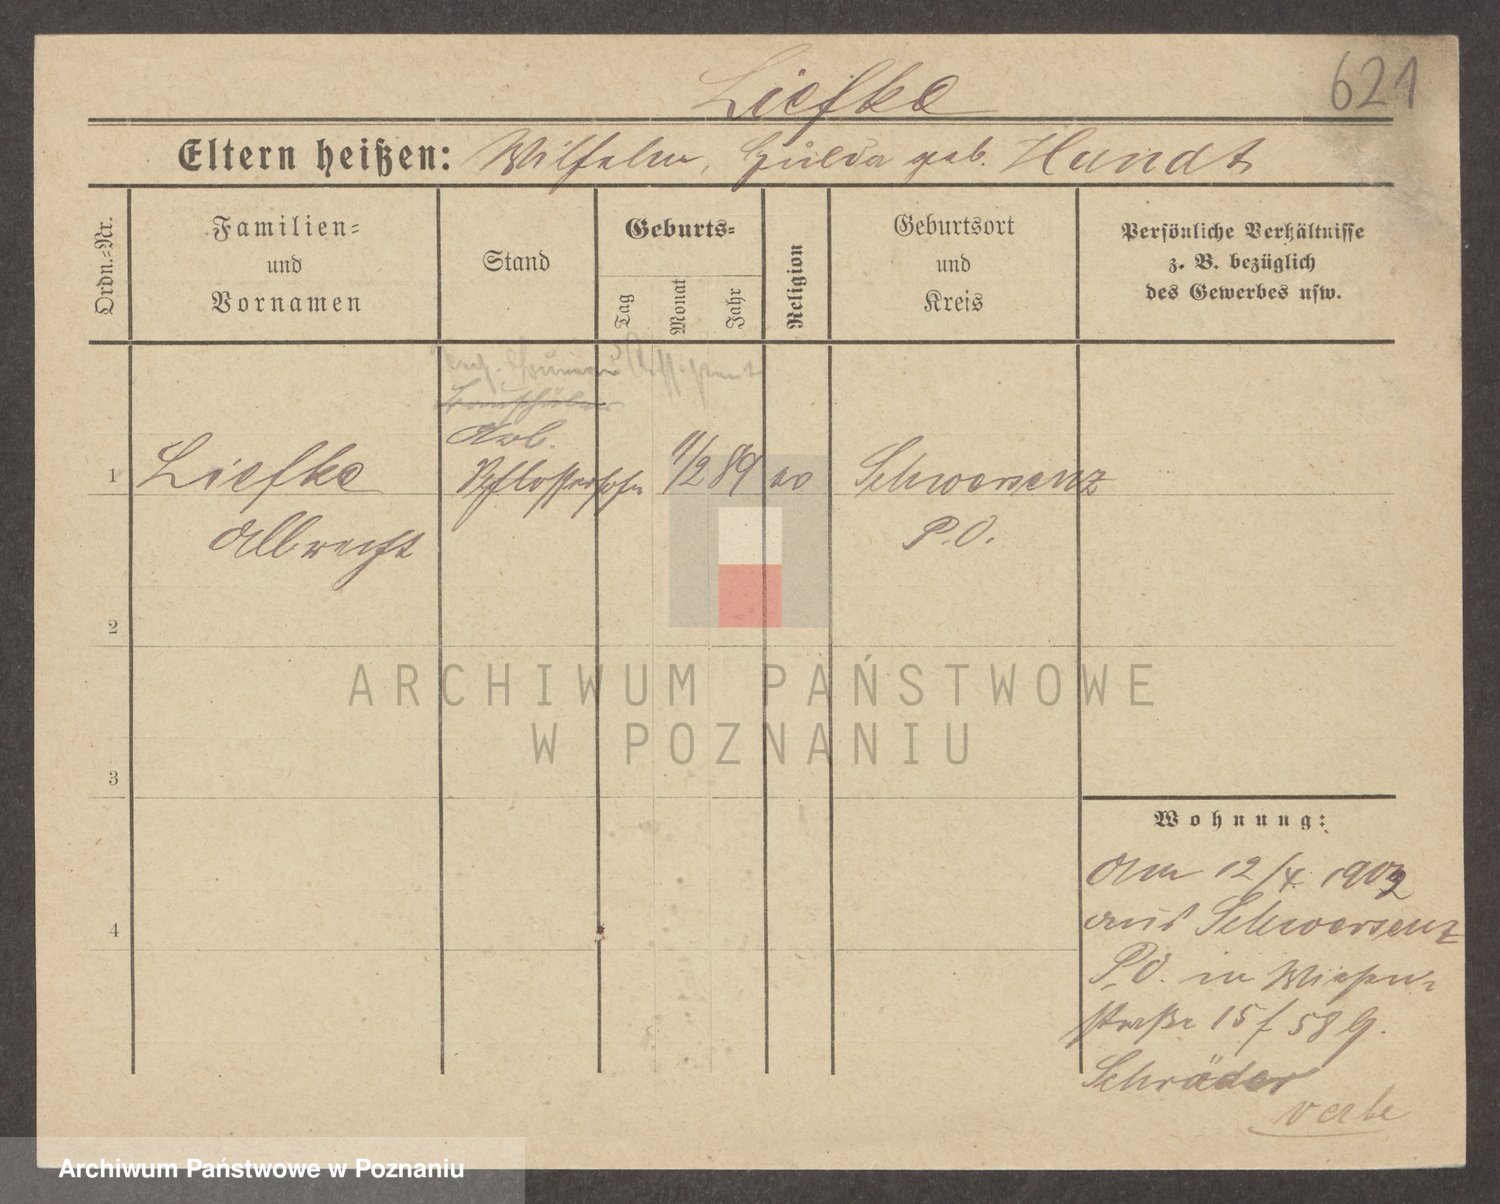 621
Liefke
Eltern heißen: Wilhelm, Hulda geb. Handt
Ordn.=Nr.
Familien=
und
Vornamen
Stand
Geburts=
Tag
Monat
Jahr
Religion
Geburtsort
und
Kreis
Persönliche Verhältnisse
z. B. bezüglich
des Gewerbes usw.
Assistent
Arb.
1 Liefke Schlossersohn 11/2 89 ev Schwersenz
Albrecht P.O.
2
3
4
Wohnung:
Am 12/4. 1902
aus Schwersenz
P.O. in Wiesen-
straße 15 f 58 G.
Schräder
ARCHIWUM PAŃSTWOWE
W POZNANIU
Archiwum Państwowe w Poznaniu